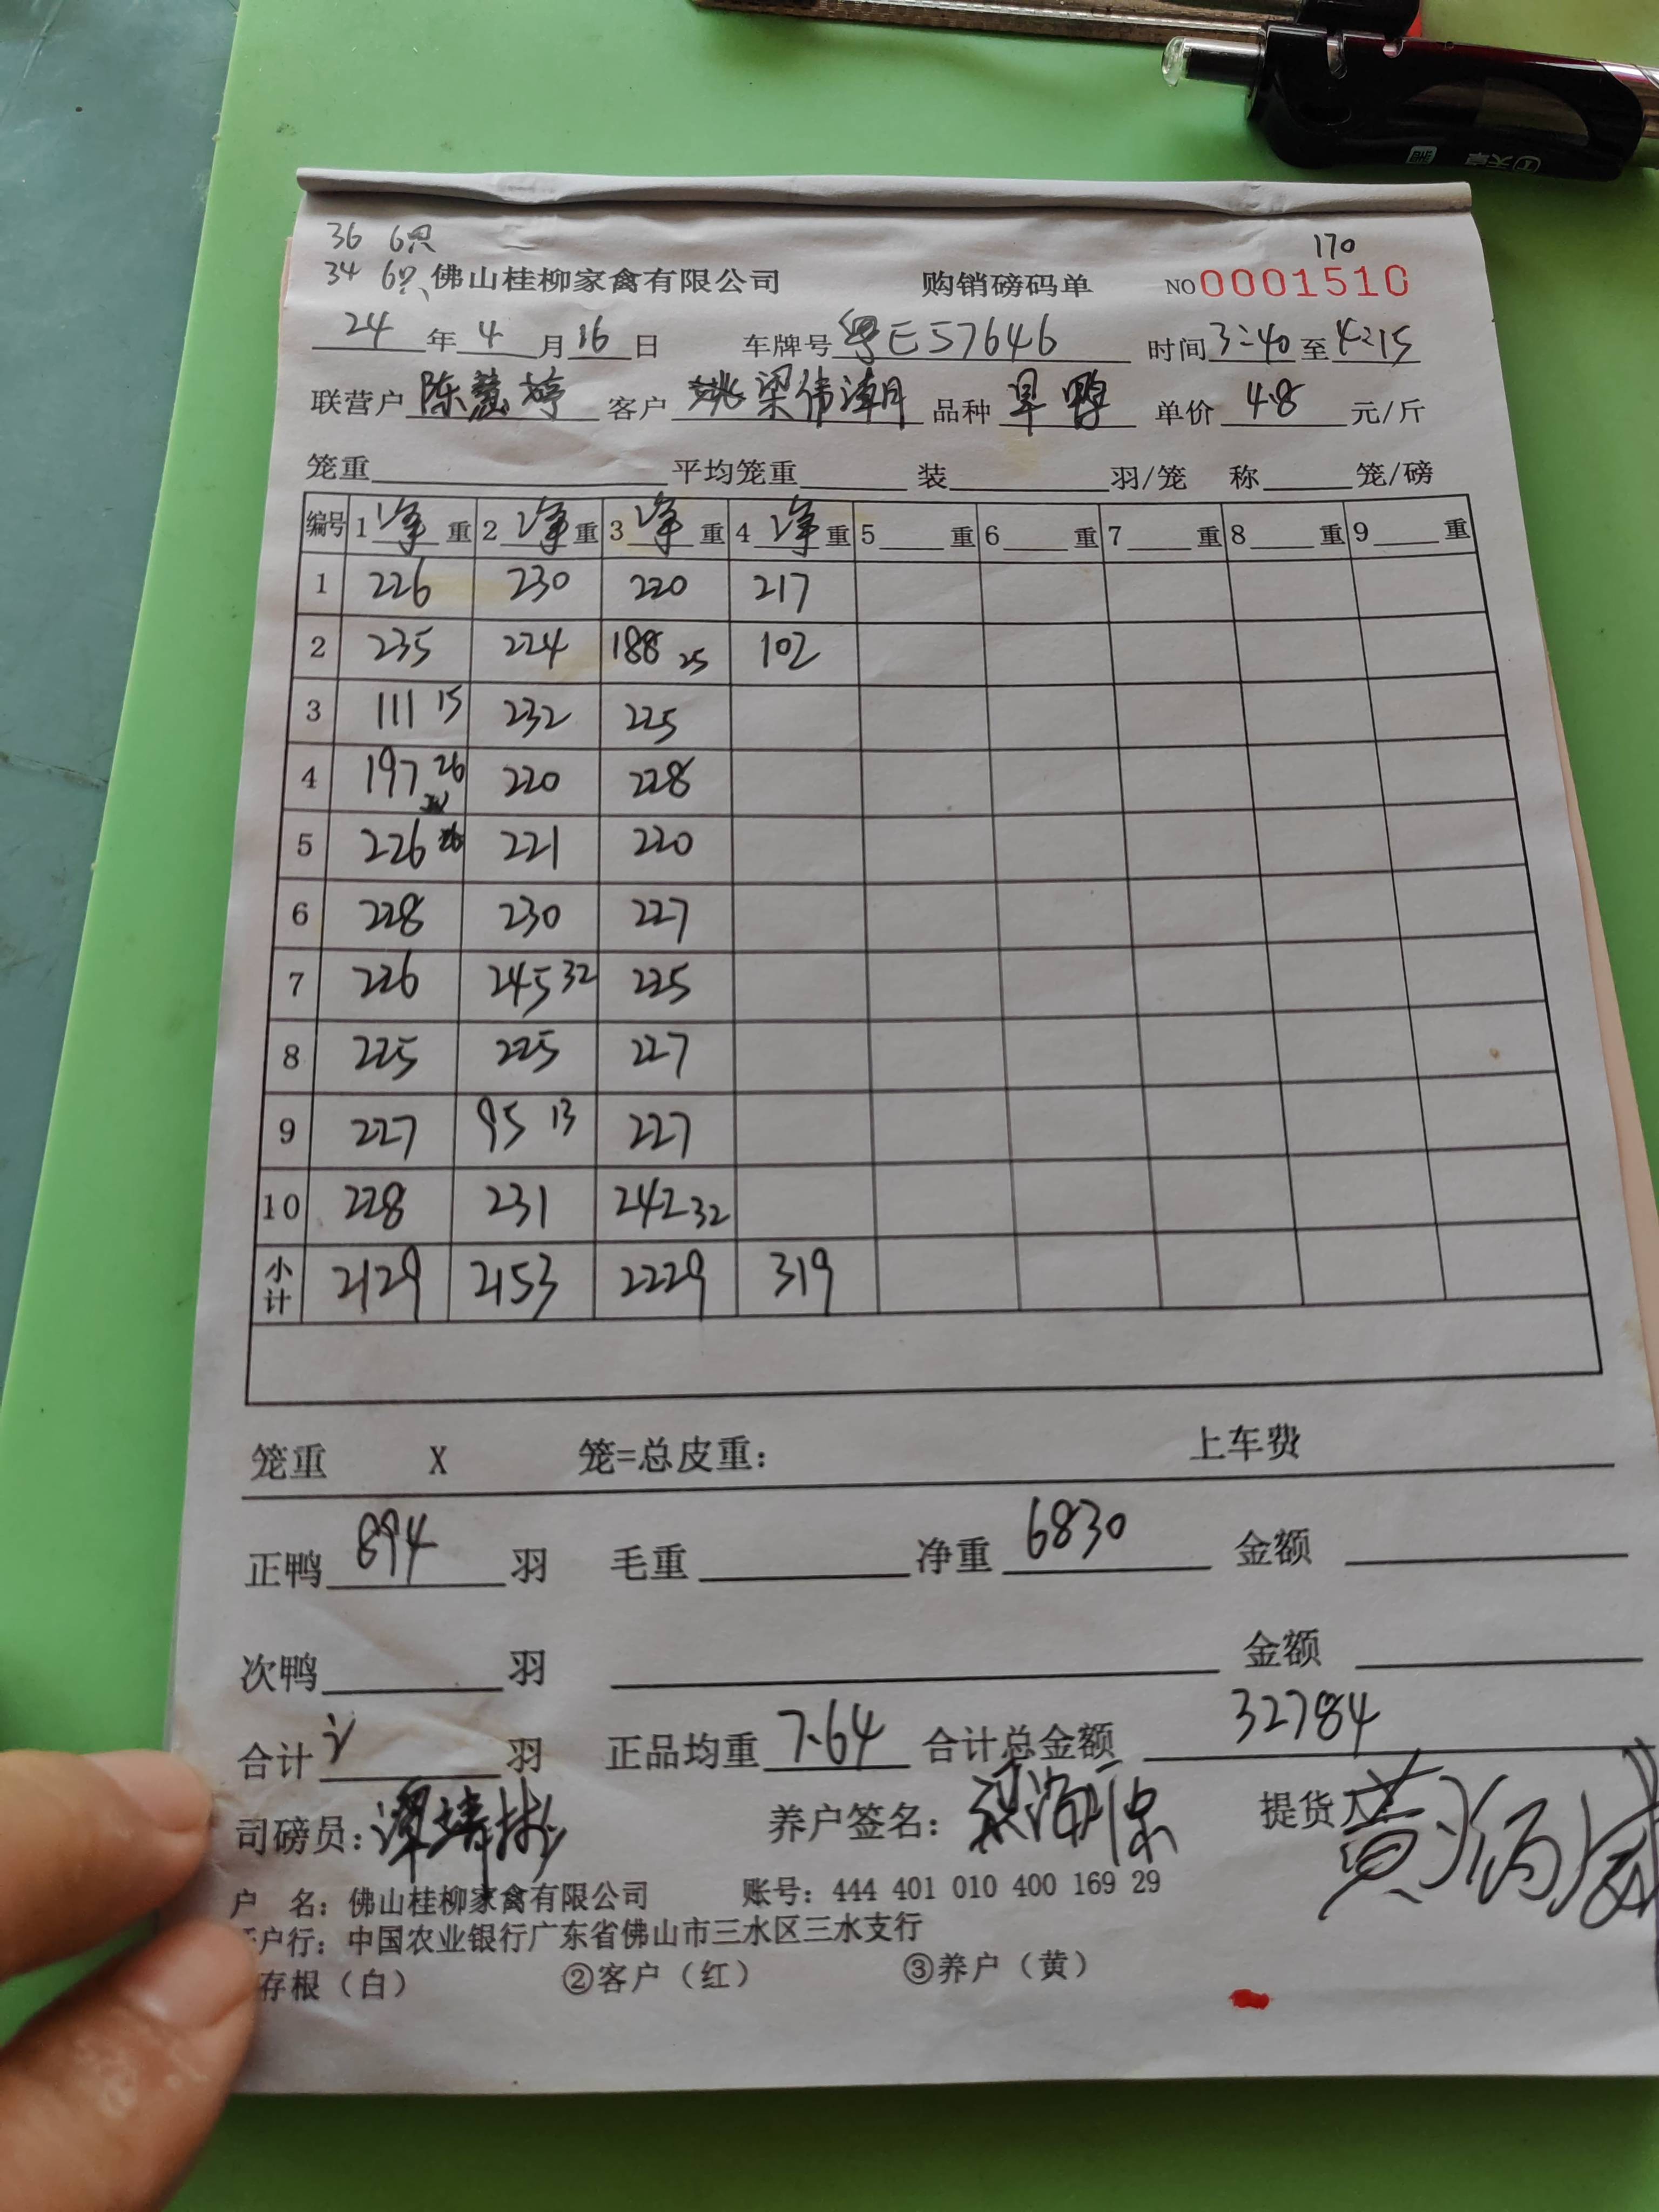 36 6只
170
34 6只 佛山桂柳家禽有限公司 购销磅码单 NO 0001510
24 年 4 月 16 日 车牌号 粤E57646 时间 3:40 至 4:15
联营户 陈慧婷 客户 姚梁伟潮 品种 旱鸭 单价 4.8 元/斤
笼重 平均笼重 装 羽/笼 称 笼/磅
编号 1 净 重 2 净 重 3 净 重 4 净 重 5 重 6 重 7 重 8 重 9 重
1 226 230 220 217
2 235 224 188 25 102
3 111 15 232 225
4 197 26 220 228
5 226 221 220
6 228 230 227
7 226 245 32 225
8 225 225 227
9 227 95 13 227
10 228 231 242 32
小计 2129 2153 2229 319
笼重 X 笼=总皮重: 上车费
正鸭 894 羽 毛重 净重 6830 金额
次鸭 羽 金额
合计 羽 正品均重 7.64 合计总金额 32784
司磅员: 养户签名: 提货人: 黄炳威
户 名: 佛山桂柳家禽有限公司 账号: 444 401 010 400 169 29
户行: 中国农业银行广东省佛山市三水区三水支行
存根（白） ②客户（红） ③养户（黄）